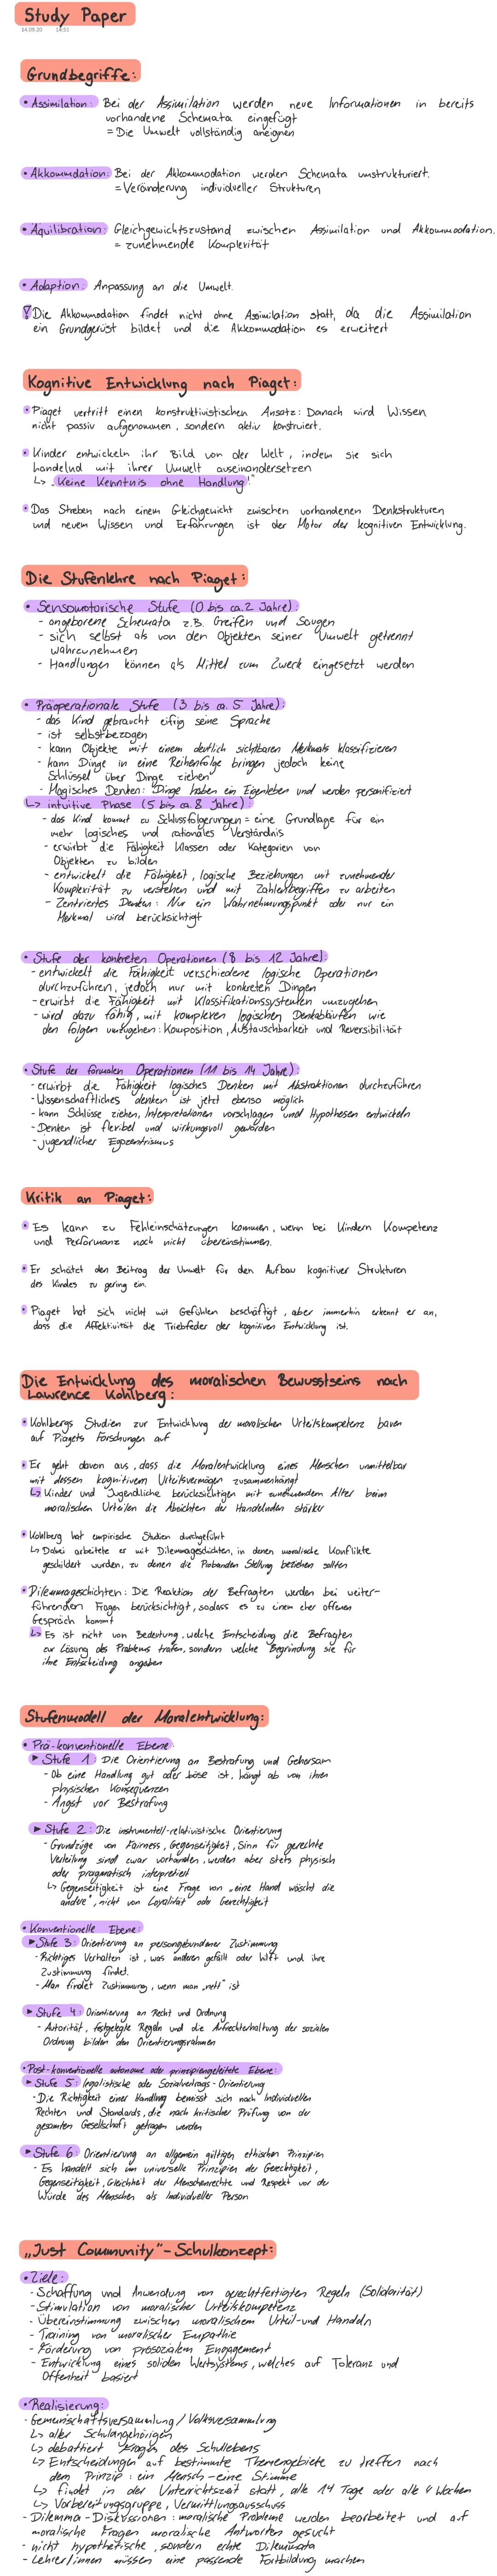 Study Paper
14.09.20 14:51
Grundbegriffe:
• Assimilation: Bei der Assimilation werden neue Informationen in bereits
vorhandene Schemata eingefügt
= Die Umwelt vollständig aneignen
• Akkommodation: Bei der Akkommodation werden Schemata umstrukturiert.
= Veränderung individueller Strukturen
• Äquilibration: Gleichgewichtszustand zwischen Assimilation und Akkommodation.
= zunehmende Komplexität
• Adaption: Anpassung an die Umwelt.
! Die Akkommodation findet nicht ohne Assimilation statt, da die Assimilation
ein Grundgerüst bildet und die Akkommodation es erweitert
Kognitive Entwicklung nach Piaget:
• Piaget vertritt einen konstruktivistischen Ansatz: Danach wird Wissen
nicht passiv aufgenommen, sondern aktiv konstruiert.
• Kinder entwickeln ihr Bild von der Welt, indem sie sich
handelnd mit ihrer Umwelt auseinandersetzen
↳ „Keine Kenntnis ohne Handlung!"
• Das Streben nach einem Gleichgewicht zwischen vorhandenen Denkstrukturen
und neuem Wissen und Erfahrungen ist der Motor der kognitiven Entwicklung.
Die Stufenlehre nach Piaget:
• Sensomotorische Stufe (0 bis ca. 2 Jahre):
- angeborene Schemata z.B. Greifen und Saugen
- sich selbst als von den Objekten seiner Umwelt getrennt
wahrzunehmen
- Handlungen können als Mittel zum Zweck eingesetzt werden
• Präoperationale Stufe (3 bis ca. 5 Jahre):
- das Kind gebraucht eifrig seine Sprache
- ist selbstbezogen
- kann Objekte mit einem deutlich sichtbaren Merkmals klassifizieren
- kann Dinge in eine Reihenfolge bringen jedoch keine
Schlüssel über Dinge ziehen
- Magisches Denken: Dinge haben ein Eigenleben und werden personifiziert
↳ intuitive Phase (5 bis ca. 8 Jahre):
- das Kind kommt zu Schlussfolgerungen = eine Grundlage für ein
mehr logisches und rationales Verständnis
- erwirbt die Fähigkeit Klassen oder Kategorien von
Objekten zu bilden
- entwickelt die Fähigkeit, logische Beziehungen mit zunehmender
Komplexität zu verstehen und mit Zahlenbegriffen zu arbeiten
- Zentriertes Denken: Nur ein Wahrnehmungspunkt oder nur ein
Merkmal wird berücksichtigt
• Stufe der konkreten Operationen (8 bis 12 Jahre):
- entwickelt die Fähigkeit verschiedene logische Operationen
durchzuführen, jedoch nur mit konkreten Dingen
- erwirbt die Fähigkeit mit Klassifikationssystemen umzugehen
- wird dazu fähig, mit komplexen logischen Denkabläufen wie
den folgen umzugehen: Komposition, Austauschbarkeit und Reversibilität
• Stufe der formalen Operationen (11 bis 14 Jahre):
- erwirbt die Fähigkeit logisches Denken mit Abstraktionen durchzuführen
- Wissenschaftliches denken ist jetzt ebenso möglich
- kann Schlüsse ziehen, Interpretationen vorschlagen und Hypothesen entwickeln
- Denken ist flexibel und wirkungsvoll geworden
- jugendlicher Egozentrismus
Kritik an Piaget:
• Es kann zu Fehleinschätzungen kommen, wenn bei Kindern Kompetenz
und Performanz noch nicht übereinstimmen.
• Er schätzt den Beitrag der Umwelt für den Aufbau kognitiver Strukturen
des Kindes zu gering ein.
• Piaget hat sich nicht mit Gefühlen beschäftigt, aber immerhin erkennt er an,
dass die Affektivität die Triebfeder der kognitiven Entwicklung ist.
Die Entwicklung des moralischen Bewusstseins nach
Lawrence Kohlberg:
• Kohlbergs Studien zur Entwicklung der moralischen Urteilskompetenz bauen
auf Piagets Forschungen auf
• Er geht davon aus, dass die Moralentwicklung eines Menschen unmittelbar
mit dessen kognitivem Urteilsvermögen zusammenhängt
↳ Kinder und Jugendliche berücksichtigen mit zunehmendem Alter beim
moralischen Urteilen die Absichten der Handelnden stärker
• Kohlberg hat empirische Studien durchgeführt
↳ Dabei arbeitete er mit Dilemmageschichten, in denen moralische Konflikte
geschildert wurden, zu denen die Probanden Stellung beziehen sollten
• Dilemmageschichten: Die Reaktion der Befragten werden bei weiter-
führenden Fragen berücksichtigt, sodass es zu einem eher offenen
Gespräch kommt
↳ Es ist nicht von Bedeutung, welche Entscheidung die Befragten
zur Lösung des Problems trafen, sondern welche Begründung sie für
ihre Entscheidung angaben
Stufenmodell der Moralentwicklung:
• Prä-konventionelle Ebene:
▶ Stufe 1: Die Orientierung an Bestrafung und Gehorsam
- Ob eine Handlung gut oder böse ist, hängt ab von ihren
physischen Konsequenzen
- Angst vor Bestrafung
▶ Stufe 2: Die instrumentell-relativistische Orientierung
- Grundzüge von Fairness, Gegenseitigkeit, Sinn für gerechte
Verteilung sind zwar vorhanden, werden aber stets physisch
oder pragmatisch interpretiert
↳ Gegenseitigkeit ist eine Frage von „eine Hand wäscht die
andere", nicht von Loyalität oder Gerechtigkeit
• Konventionelle Ebene:
▶ Stufe 3: Orientierung an personengebundener Zustimmung
- Richtiges Verhalten ist, was anderen gefällt oder hilft und ihre
Zustimmung findet.
- Man findet Zustimmung, wenn man „nett" ist
▶ Stufe 4: Orientierung an Recht und Ordnung
- Autorität, festgelegte Regeln und die Aufrechterhaltung der sozialen
Ordnung bilden den Orientierungsrahmen
• Post-konventionelle autonome oder prinzipiengeleitete Ebene:
▶ Stufe 5: legalistische oder Sozialvertrags-Orientierung
- Die Richtigkeit einer Handlung bemisst sich nach Individuellen
Rechten und Standards, die nach kritischer Prüfung von der
gesamten Gesellschaft getragen werden
▶ Stufe 6: Orientierung an allgemein gültigen ethischen Prinzipien
- Es handelt sich um universelle Prinzipien der Gerechtigkeit,
Gegenseitigkeit, Gleichheit der Menschenrechte und Respekt vor der
Würde des Menschen als Individueller Person
„Just Community"-Schulkonzept:
• Ziele:
- Schaffung und Anwendung von gerechtfertigten Regeln (Solidarität)
- Stimulation von moralischer Urteilskompetenz
- Übereinstimmung zwischen moralischem Urteil- und Handeln
- Training von moralischer Empathie
- Förderung von prosozialem Engagement
- Entwicklung eines soliden Wertsystems, welches auf Toleranz und
Offenheit basiert
• Realisierung:
- Gemeinschaftsversammlung / Vollversammlung
↳ aller Schulangehörigen
↳ debattiert Fragen des Schullebens
↳ Entscheidungen auf bestimmte Themengebiete zu treffen nach
dem Prinzip: ein Mensch - eine Stimme
↳ findet in der Unterrichtszeit statt, alle 14 Tage oder alle 4 Wochen
↳ Vorbereitungsgruppe, Vermittlungsausschuss
- Dilemma-Diskussionen: moralische Probleme werden bearbeitet und auf
moralische Fragen moralische Antworten gesucht
- nicht hypothetische, sondern echte Dilemmata
- Lehrer/innen müssen eine passende Fortbildung machen